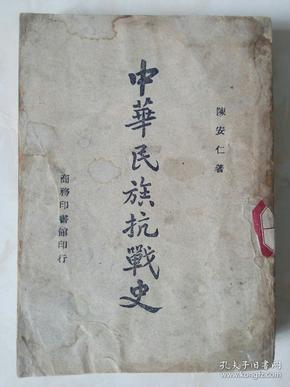 陳安仁著
中華民族抗戰史
商務印書館印行
孔夫子旧书网